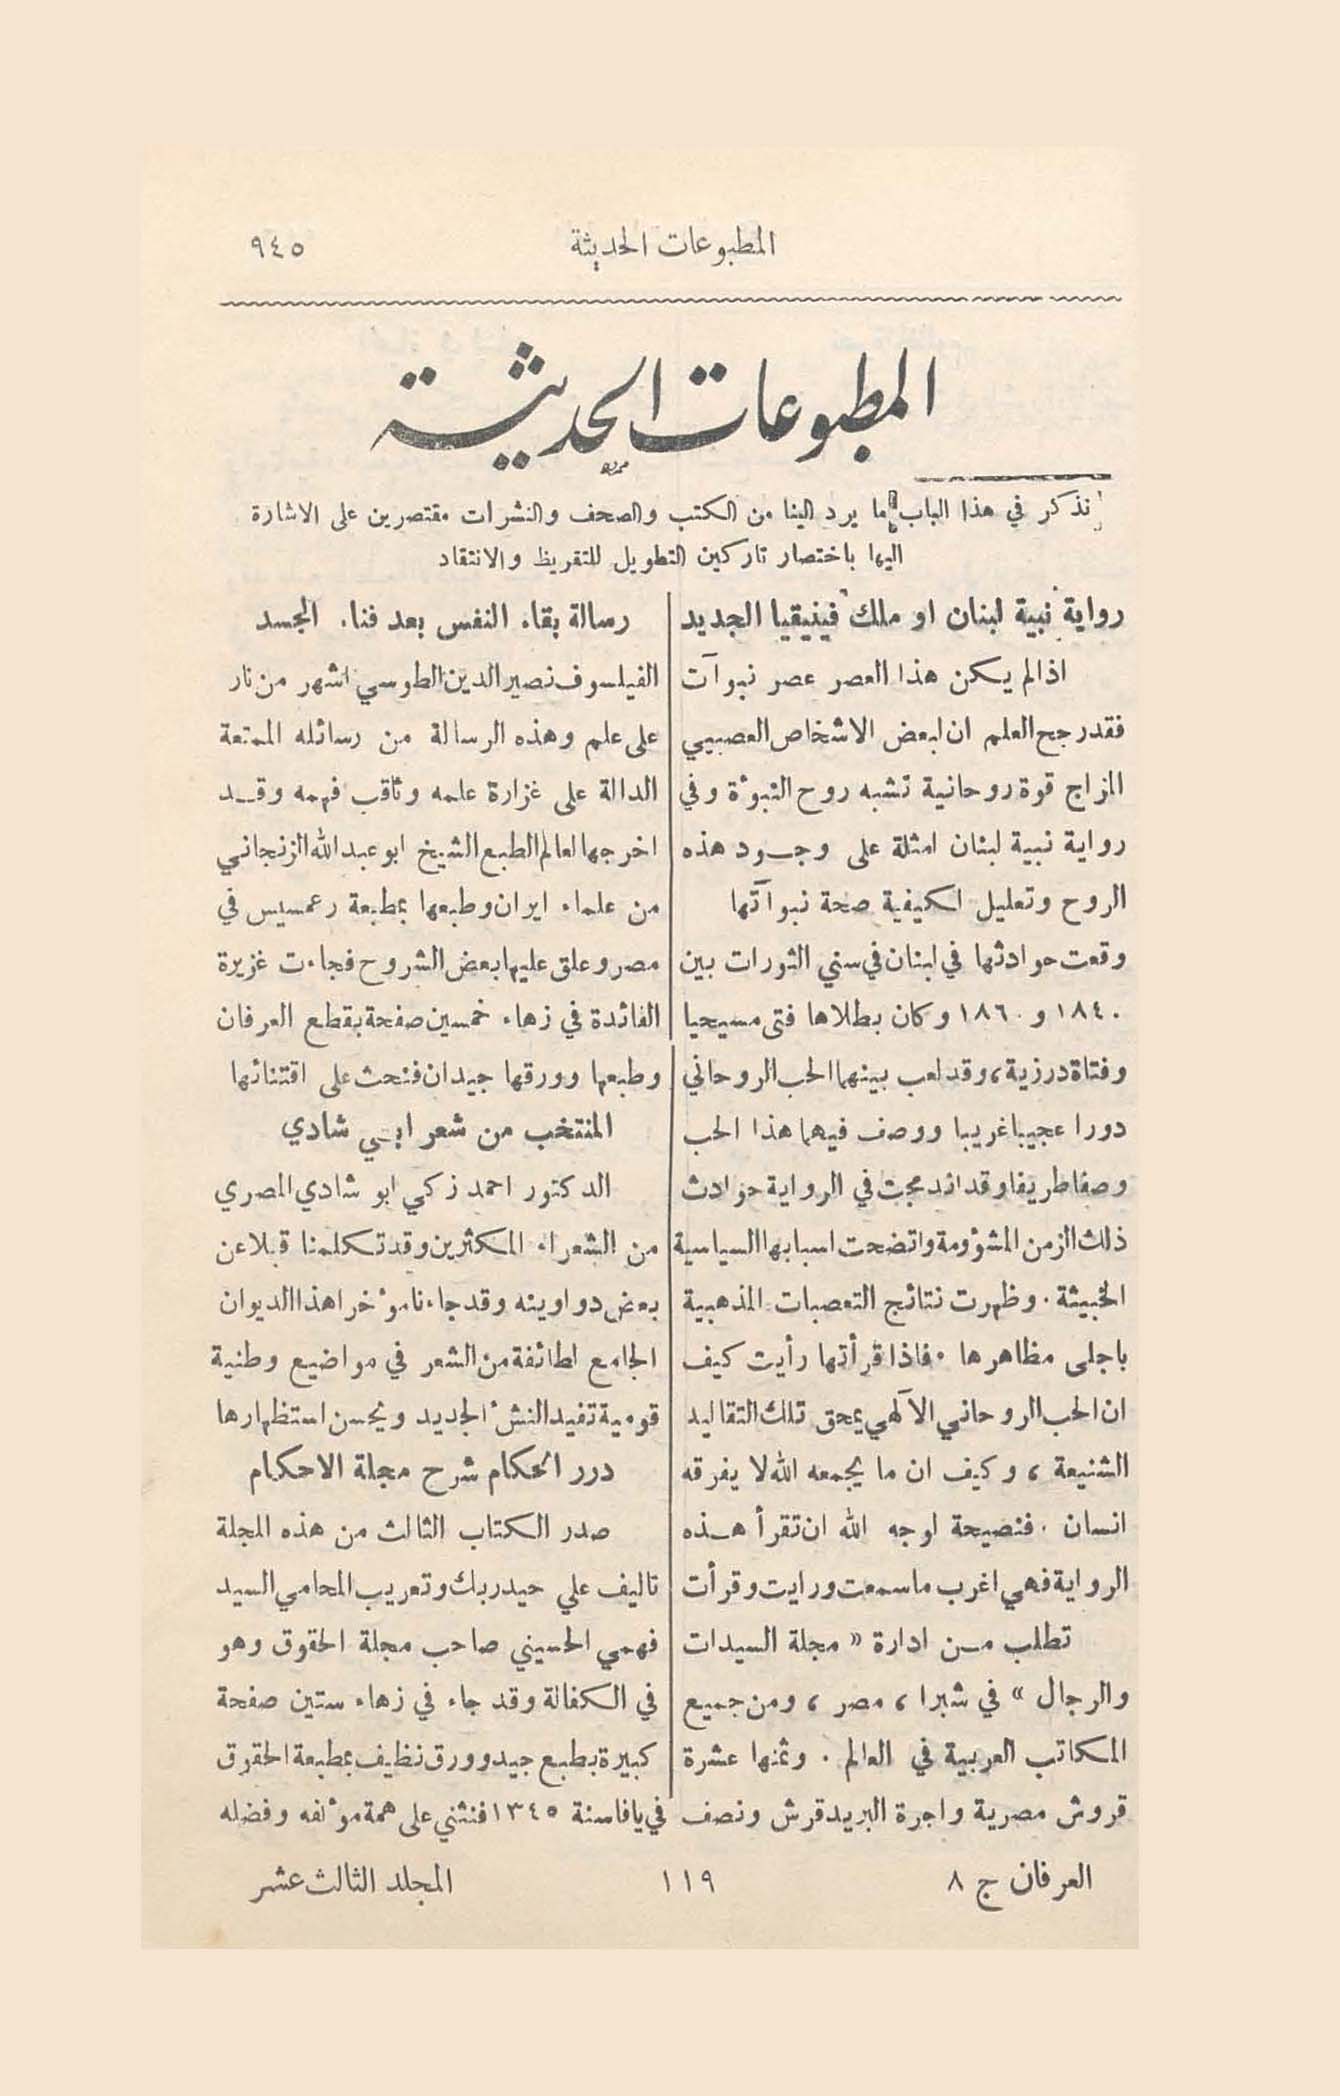 المطبوعات الحديثة
٩٤٥
المطبوعات الحديثة
نذكر في هذا الباب ما يرد الينا من الكتب والصحف والنشرات مقتصرين على الاشارة
اليها باختصار تاركين التطويل للتقريظ والانتقاد
رواية نبية لبنان او ملك فينيقيا الجديد
اذا لم يكن هذا العصر عصر نبوآت
فقد رجح العلم ان لبعض الاشخاص العصبيي
المزاج قوة روحانية تشبه روح النبوءة وفي
رواية نبية لبنان امثلة على وجود هذه
الروح وتعليل لكيفية صحة نبوآتها
وقعت حوادثها في لبنان في سني الثورات بين
١٨٤٠ و ١٨٦٠ وكان بطلاها فتى مسيحيا
وفتاة درزية، وقد لعب بينهما الحب الروحاني
دورا عجيبا غريبا ووصف فيهما هذا الحب
وصفا طريفا وقد اندمجت في الرواية حوادث
ذلك الزمن المشؤومة واتضحت اسبابها السياسية
الخبيثة. وظهرت نتائج التعصبات المذهبية
باجلى مظاهرها. فاذا قرأتها رأيت كيف
ان الحب الروحاني الآلهي يمحق تلك التقاليد
الشنيعة، وكيف ان ما يجمعه الله لا يفرقه
انسان. فنصيحة لوجه الله ان تقرأ هذه
الرواية فهي اغرب ما سمعت ورايت وقرأت
تطلب من ادارة « مجلة السيدات
والرجال » في شبرا، مصر، ومن جميع
المكاتب العربية في العالم. وثمنها عشرة
قروش مصرية واجرة البريد قرش ونصف
رسالة بقاء النفس بعد فناء الجسد
الفيلسوف نصير الدين الطوسي اشهر من نار
على علم وهذه الرسالة من رسائله الممتعة
الدالة على غزارة علمه وثاقب فهمه وقد
اخرجها لعالم الطبع الشيخ ابو عبد الله الزنجاني
من علماء ايران وطبعها بمطبعة رعمسيس في
مصر وعلق عليها بعض الشروح فجاءت غزيرة
الفائدة في زهاء خمسين صفحة بقطع العرفان
وطبعها وورقها جيدان فنحث على اقتنائها
المنتخب من شعر ابي شادي
الدكتور احمد زكي ابو شادي المصري
من الشعراء المكثرين وقد تكلمنا قبلا عن
بعض دواوينه وقد جاءنا موءخرا هذا الديوان
الجامع لطائفة من الشعر في مواضيع وطنية
قومية تفيد النشء الجديد ويحسن استظهارها
درر الحكام شرح مجلة الاحكام
صدر الكتاب الثالث من هذه المجلة
تاليف علي حيدر بك وتعريب المحامي السيد
فهمي الحسيني صاحب مجلة الحقوق وهو
في الكفالة وقد جاء في زهاء ستين صفحة
كبيرة بطبع جيد وورق نظيف بمطبعة الحقوق
في يافا سنة ١٣٤٥ فنثني على همة موءلفه وفضله
العرفان ج ٨
١١٩
المجلد الثالث عشر